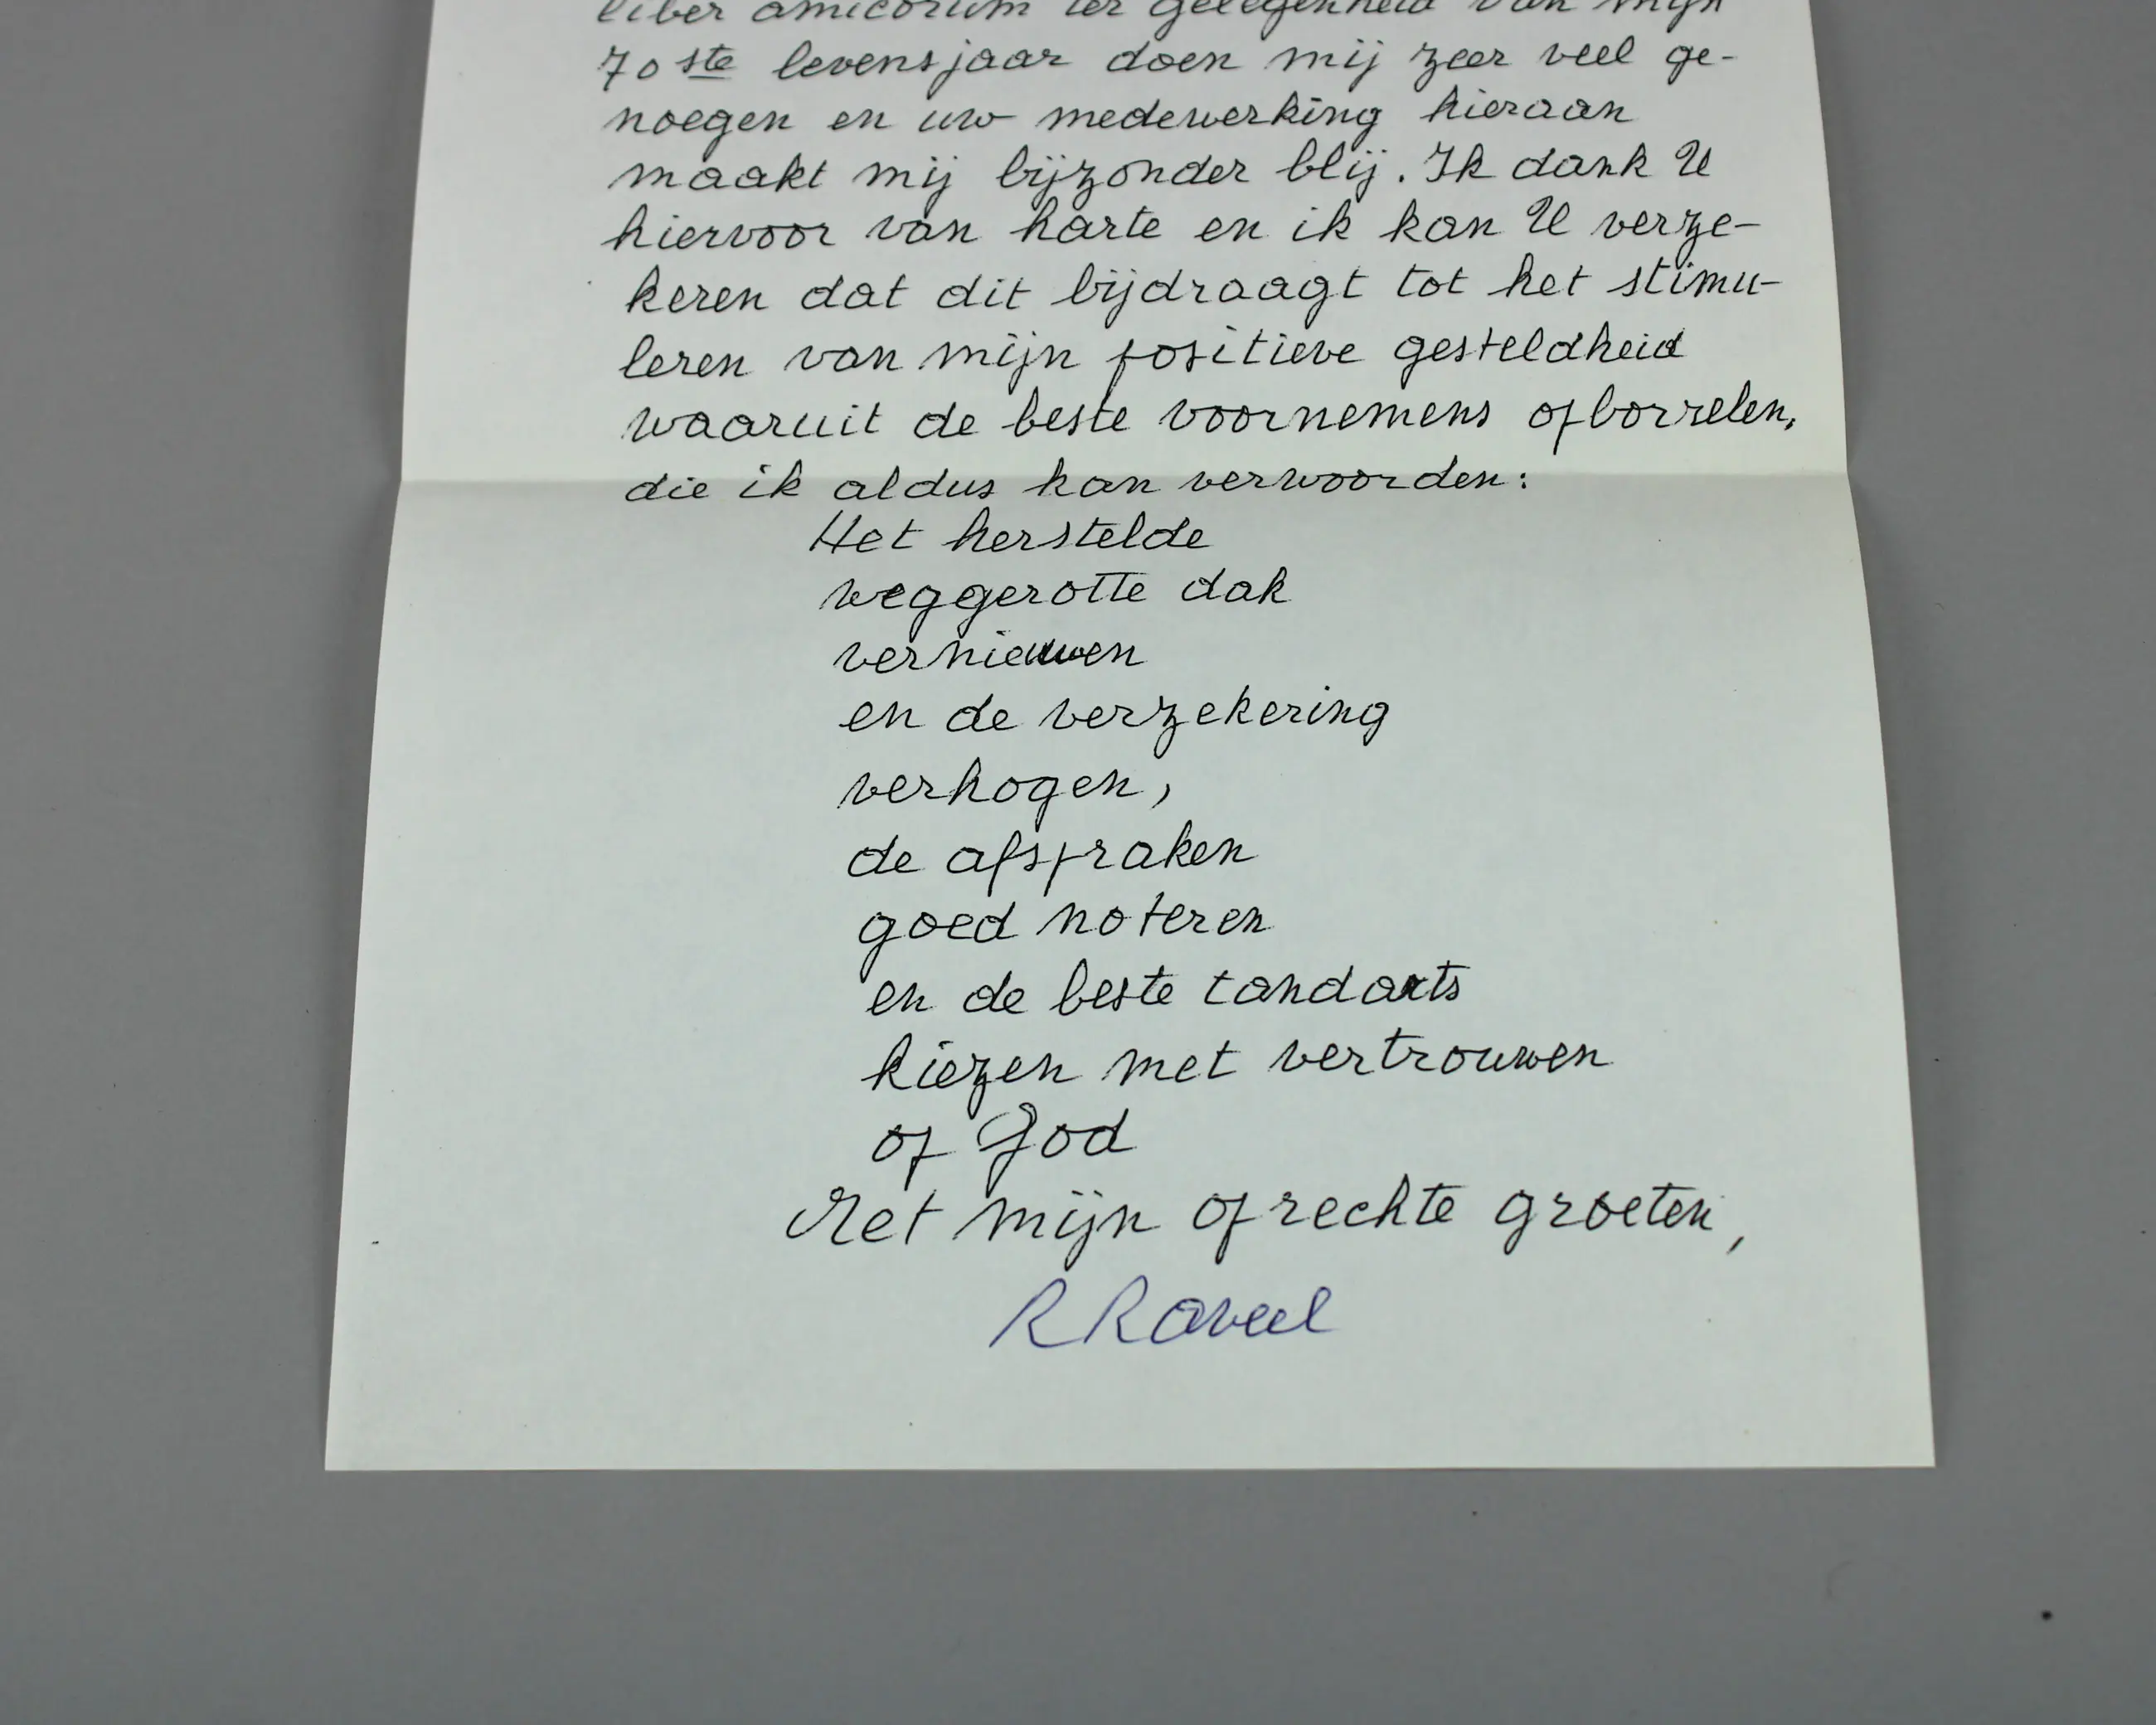 liber amicorum ter gelegenheid van mijn
70ste levensjaar doen mij zeer veel ge-
noegen en uw medewerking hieraan
maakt mij bijzonder blij. Ik dank U
hiervoor van harte en ik kan U verze-
keren dat dit bijdraagt tot het stimu-
leren van mijn positieve gesteldheid
waaruit de beste voornemens opborrelen,
die ik aldus kan verwoorden:
Het herstelde
weggerotte dak
vernieuwen
en de verzekering
verhogen,
de afspraken
goed noteren
en de beste tandarts
kiezen met vertrouwen
op God
Met mijn oprechte groeten,
R Raveel